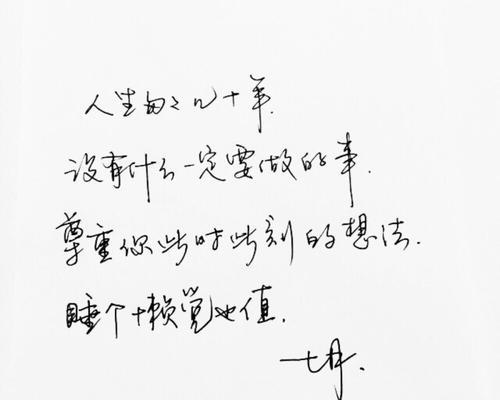 人生匆匆几十年.
没有什么一定要做的事.
尊重你此时此刻的想法.
睡个懒觉也值.
七月.